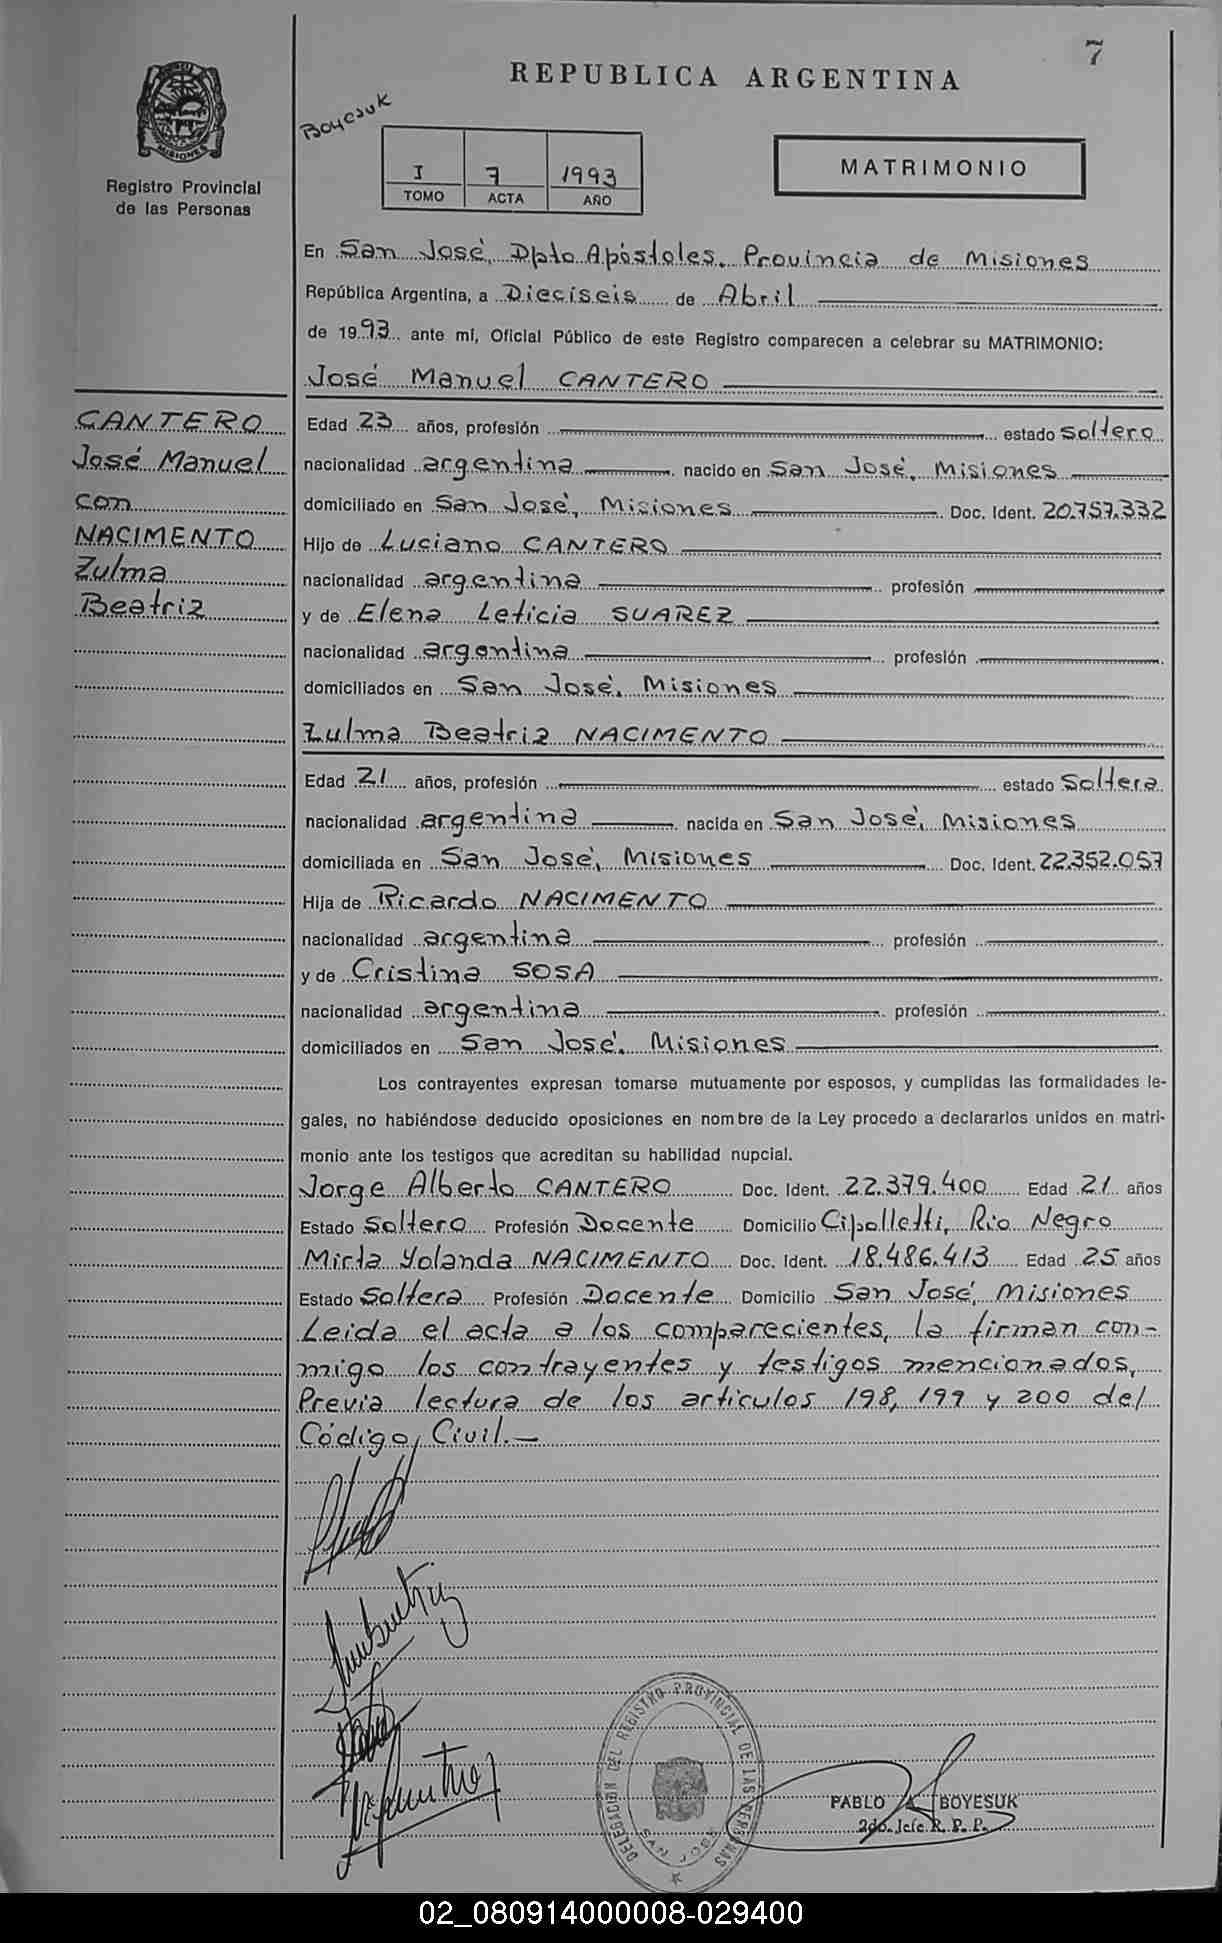 7
REPUBLICA ARGENTINA
Boyesuk
MISIONES
Registro Provincial
de las Personas
I 7 1993
TOMO ACTA AÑO
MATRIMONIO
En San José, Dpto Apóstoles. Provincia de Misiones
República Argentina, a Dieciseis de Abril
de 1993 ante mi, Oficial Público de este Registro comparecen a celebrar su MATRIMONIO:
José Manuel CANTERO
CANTERO
José Manuel
con
NACIMENTO
Zulma
Beatriz
Edad 23 años, profesión estado Soltero
nacionalidad argentina nacido en San José, Misiones
domiciliado en San José, Misiones Doc. Ident. 20.757.332
Hijo de Luciano CANTERO
nacionalidad argentina profesión
y de Elena Leticia SUAREZ
nacionalidad argentina profesión
domiciliados en San José. Misiones
Zulma Beatriz NACIMENTO
Edad 21 años, profesión estado Soltera
nacionalidad argentina nacida en San José, Misiones
domiciliada en San José, Misiones Doc. Ident. 22.352.057
Hija de Ricardo NACIMENTO
nacionalidad argentina profesión
y de Cristina SOSA
nacionalidad argentina profesión
domiciliados en San José. Misiones
Los contrayentes expresan tomarse mutuamente por esposos, y cumplidas las formalidades le-
gales, no habiéndose deducido oposiciones en nombre de la Ley procedo a declararlos unidos en matri-
monio ante los testigos que acreditan su habilidad nupcial.
Jorge Alberto CANTERO Doc. Ident. 22.379.400 Edad 21 años
Estado Soltero Profesión Docente Domicilio Cipolletti, Rio Negro
Mirta Yolanda NACIMENTO Doc. Ident. 18.486.413 Edad 25 años
Estado Soltera Profesión Docente Domicilio San José, Misiones
Leida el acta a los comparecientes, la firman con-
migo los contrayentes y testigos mencionados,
Previa lectura de los articulos 198, 199 y 200 del
Código Civil.-
DELEGACION DEL REGISTRO PROVINCIAL DE LAS PERSONAS
SAN JOSE
PABLO A. BOYESUK
2do. Jefe R. P. P.
02_080914000008-029400